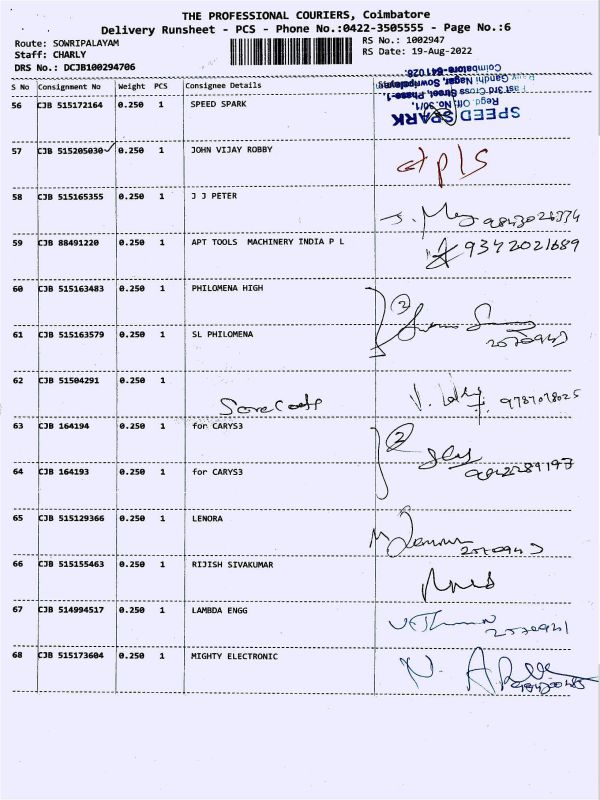 THE PROFESSIONAL COURIERS, Coimbatore
Delivery Runsheet - PCS - Phone No.:0422-3505555 - Page No.:6
Route: SOWRIPALAYAM
RS No.: 1002947
Staff: CHARLY
RS Date: 19-Aug-2022
DRS No.: DCJB100294706
S No Consignment No Weight PCS Consignee Details
56 CJB 515172164 0.250 1 SPEED SPARK
SPEED SPARK
Regd. Off: No.30/1,
East 3rd Cross Street, Phase-1,
Gandhi Nagar, Sowripalayam
Coimbatore-641028.
57 CJB 515205030 0.250 1 JOHN VIJAY ROBBY
58 CJB 515165355 0.250 1 J J PETER
59 CJB 88491220 0.250 1 APT TOOLS MACHINERY INDIA P L 9342021689
60 CJB 515163483 0.250 1 PHILOMENA HIGH
2
61 CJB 515163579 0.250 1 SL PHILOMENA
62 CJB 51504291 0.250 1
63 CJB 164194 0.250 1 for CARYS3
2
64 CJB 164193 0.250 1 for CARYS3
65 CJB 515129366 0.250 1 LENORA
66 CJB 515155463 0.250 1 RIJISH SIVAKUMAR
67 CJB 514994517 0.250 1 LAMBDA ENGG
68 CJB 515173604 0.250 1 MIGHTY ELECTRONIC